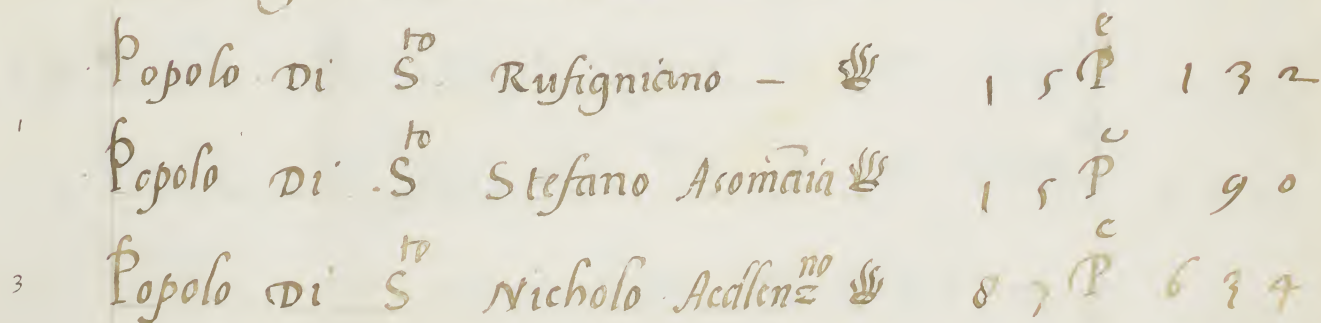 Popolo Di S^to Rufigniano – 15 P^e 132
1 Popolo Di S^to Stefano Acom̄aia 15 P^c 90
3 Popolo Di S^to Nicholo Acalenz^no 87 P^c 634